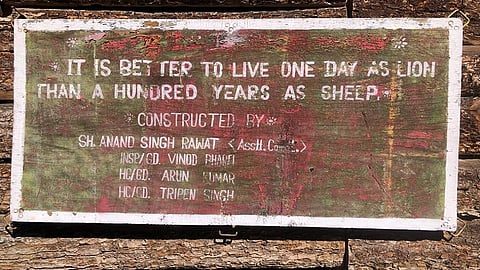 IT IS BETTER TO LIVE ONE DAY AS LION
THAN A HUNDRED YEARS AS SHEEP.
CONSTRUCTED BY
SH. ANAND SINGH RAWAT <Asstt. Comdt.>
INSP/GD. VINOD
HC/GD. ARUN KUMAR
HC/GD. TRIPEN SINGH